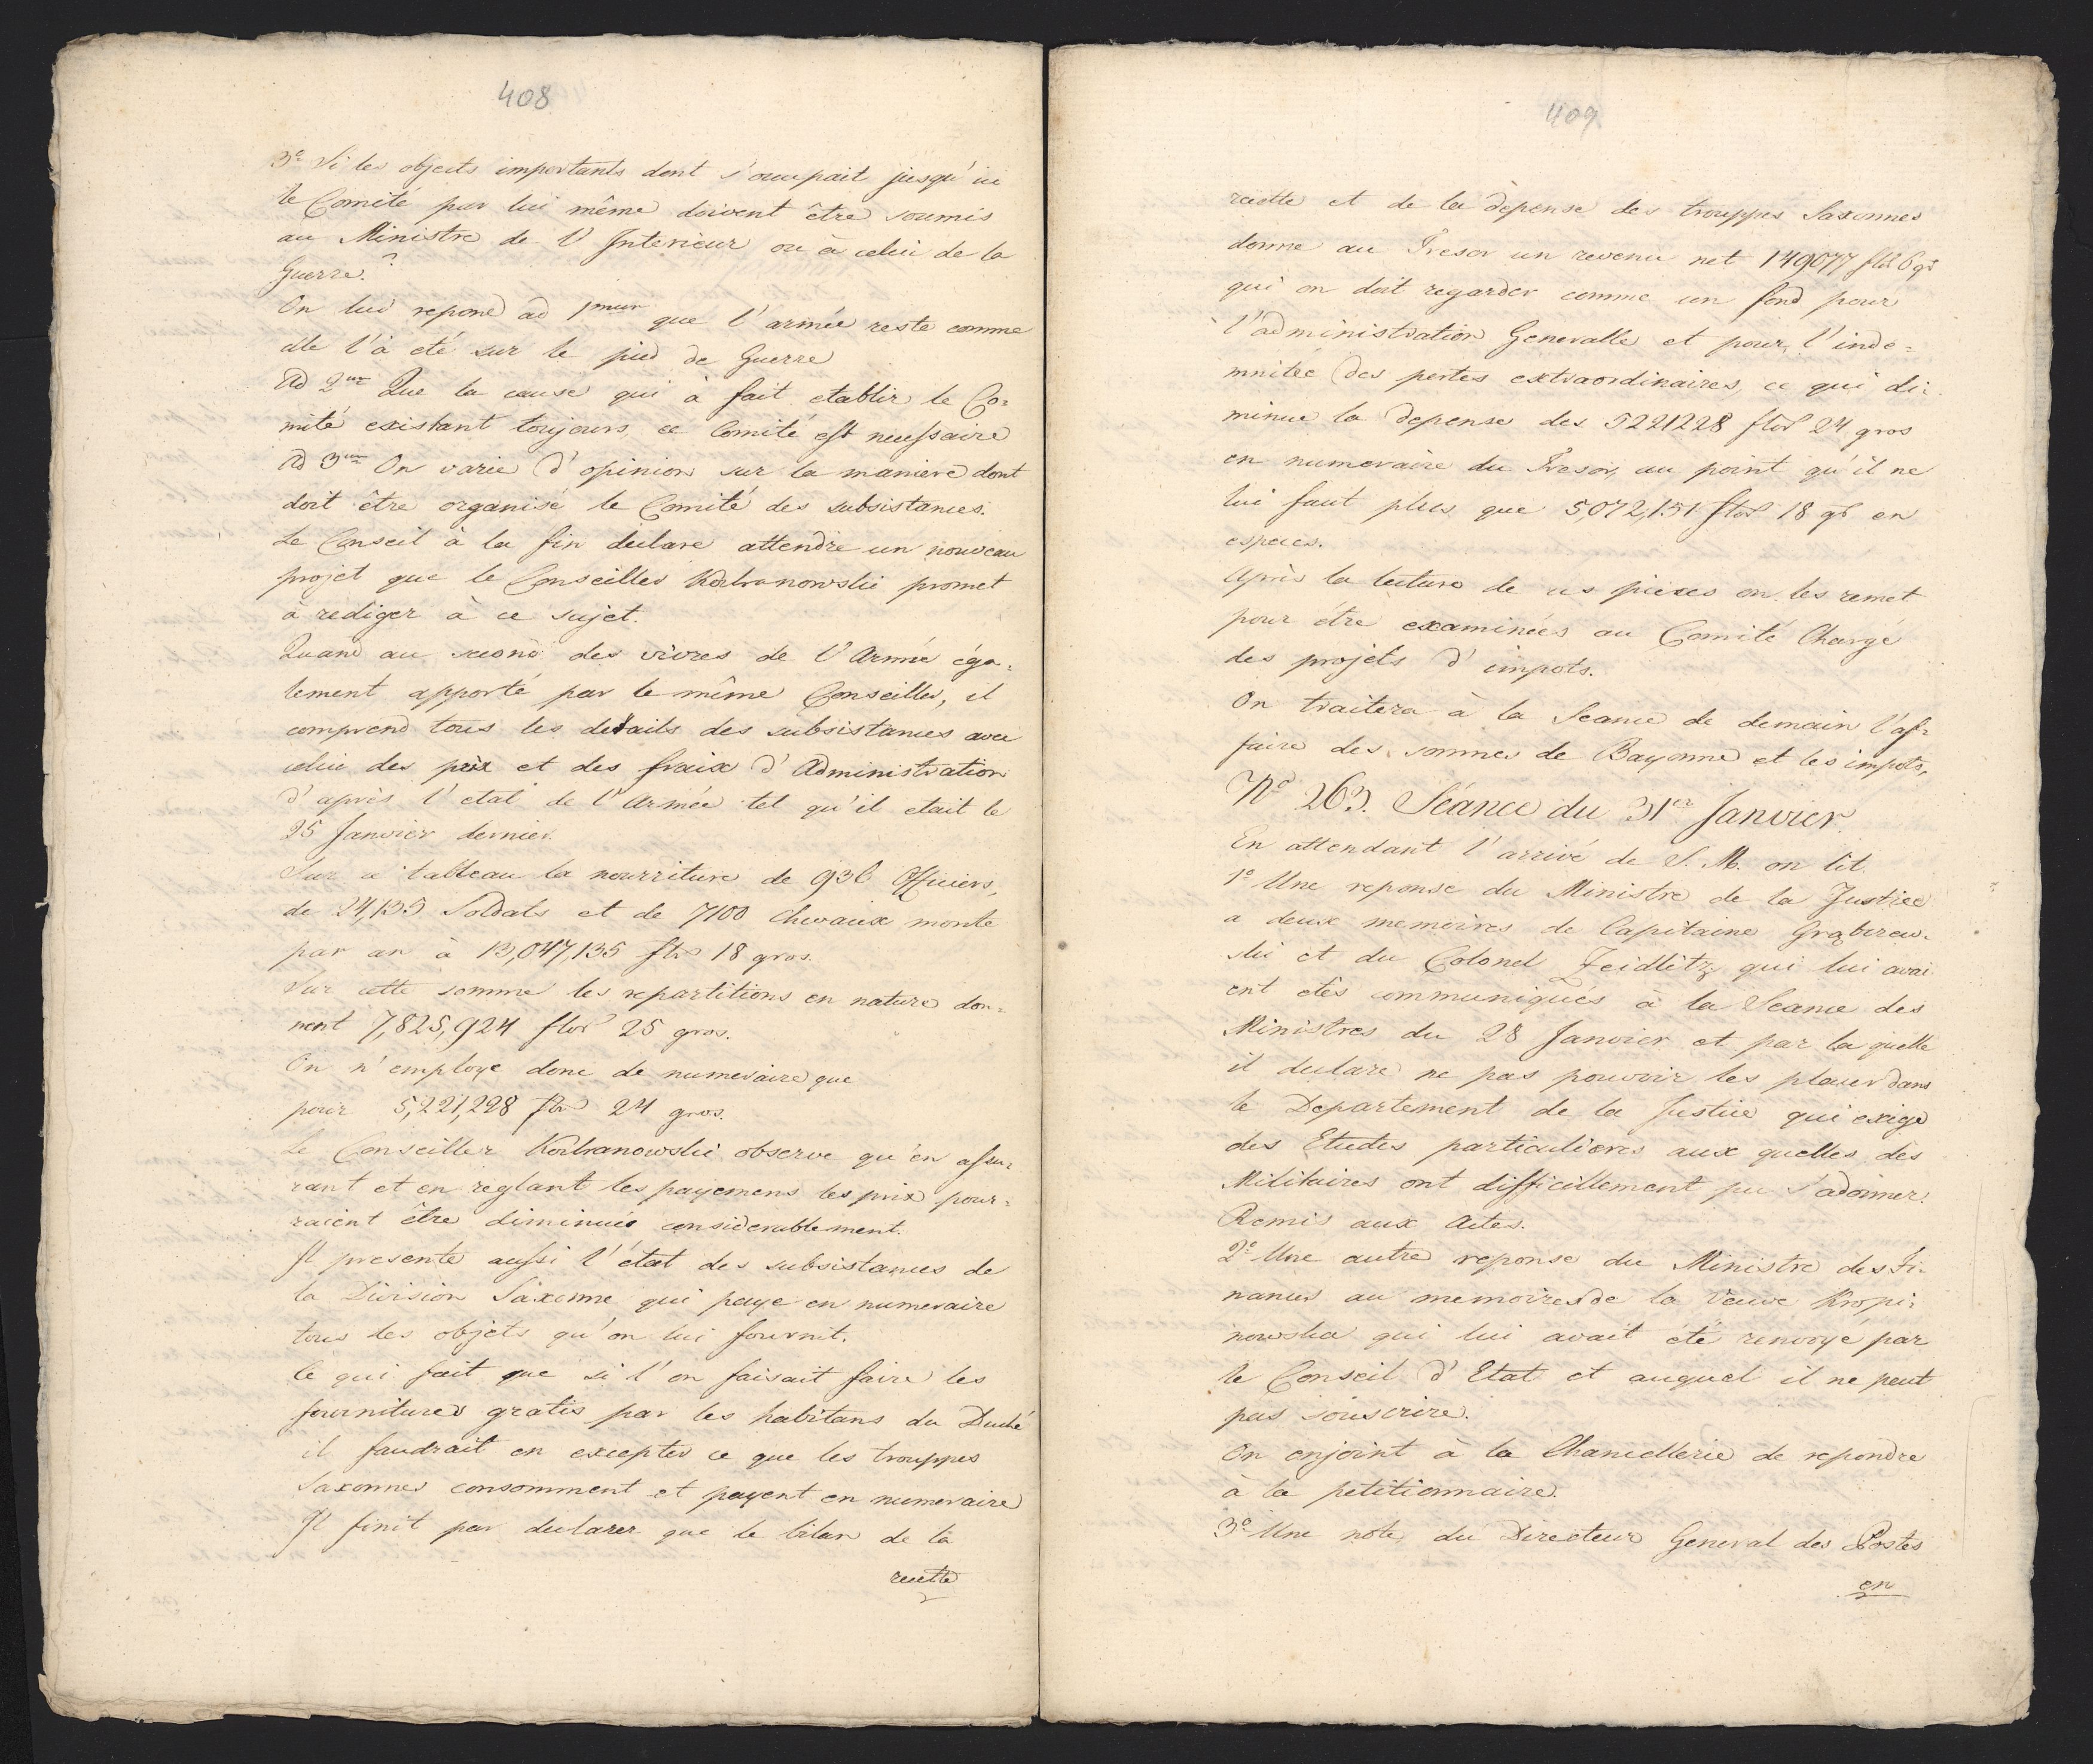 408
3º Si les objects importants dont s'occupait jusqu'ici
le Comité par lui même doivent être soumis
au Ministre de l'Interieur ou à celui de la
Guerre?
On lui repond ad 1mum que l'armée reste comme
elle l'à eté sur le pied de Guerre
Ad 2um Que la cause qui à fait etablir le Co=
mité existant toujours, ce Comité est necessaire
Ad 3um On varie d'opinion sur la maniere dont
doit être organisé le Comité des subsistances.
Le Conseil à la fin declare attendre un nouveau
projet que le Conseiller Kochanowski promet
à rediger à ce sujet.
Quand au second des vivres de l'Armée éga=
lement apporté par le même Conseiller, il
comprend tous les details des subsistances avec
celui des prix et des fraix d'Administration
d'après l'etat de l'Armée tel qu'il etait le
25 Janvier dernier.
Sur ce tableau la nourriture de 936 Officiers,
de 24,135 Soldats et de 7100 Chevaux monte
par an à 13,047,135 flor 18 gros.
Sur cette somme les repartitions en nature don=
nent 7,825,924 flor 25 gros.
On n'employe donc de numeraire que
pour 5,221,228 flor 24 gros.
Le Conseiller Kochanowski observe qu'en assu=
rant et en reglant les payemens les prix pour=
raient être diminués considerablement.
Il presente aussi l'état des subsistances de
la Division Saxonne qui paye en numeraire
tous les objets qu'on lui fournit.
Ce qui fait que si l'on faisait faire les
fournitures gratis par les habitans du Duché
il faudrait en excepter ce que les trouppes
Saxonnes consomment et payent en numeraire
Il finit par declarer que le bilan de la
recette
409
recette et de la depense des trouppes Saxonnes
donne au Tresor un revenu net 149077 flor 6 gr
qui on doit regarder comme un fond pour
l'administration Generalle et pour l'inde=
mnitée des pertes extraordinaires, ce qui di=
minue la depense des 5221228 flor 24 gros
en numeraire du Tresor, au point qu'il ne
lui faut plus que 5,072,151 flor 18 gr en
especes.
Après la lecture de ces pieces on les remet
pour être examinées au Comité Chargé
des projets d'impots.
On traitera à la Seance de demain l'af=
faire des sommes de Bayonne et les impots.
Nº 263. Séance du 31er Janvier.
En attendant l'arrivé de S. M. on lit.
1º Une reponse du Ministre de la Justice
a deux memoires de Capitaine Grabczew=
ski et du Colonel Zeidlitz qui lui avai
ent etès communiqués à la Seance des
Ministres du 28 Janvier et par la quelle
il declare ne pas pouvoir les placer dans
le Departement de la Justice qui exige
des Etudes particulieres aux quelles des
Militaires ont difficillement pu s'adonner.
Remis aux Actes.
2º Une autre reponse du Ministre des Fi=
nances au memoires de la Veuve Kropi=
nowska qui lui avait été renvoyé par
le Conseil d'Etat et auquel il ne peut
pas souscrire.
On enjoint à la Chancellerie de repondre
à la petitionnaire.
3º Une note du Directeur General des Postes
en